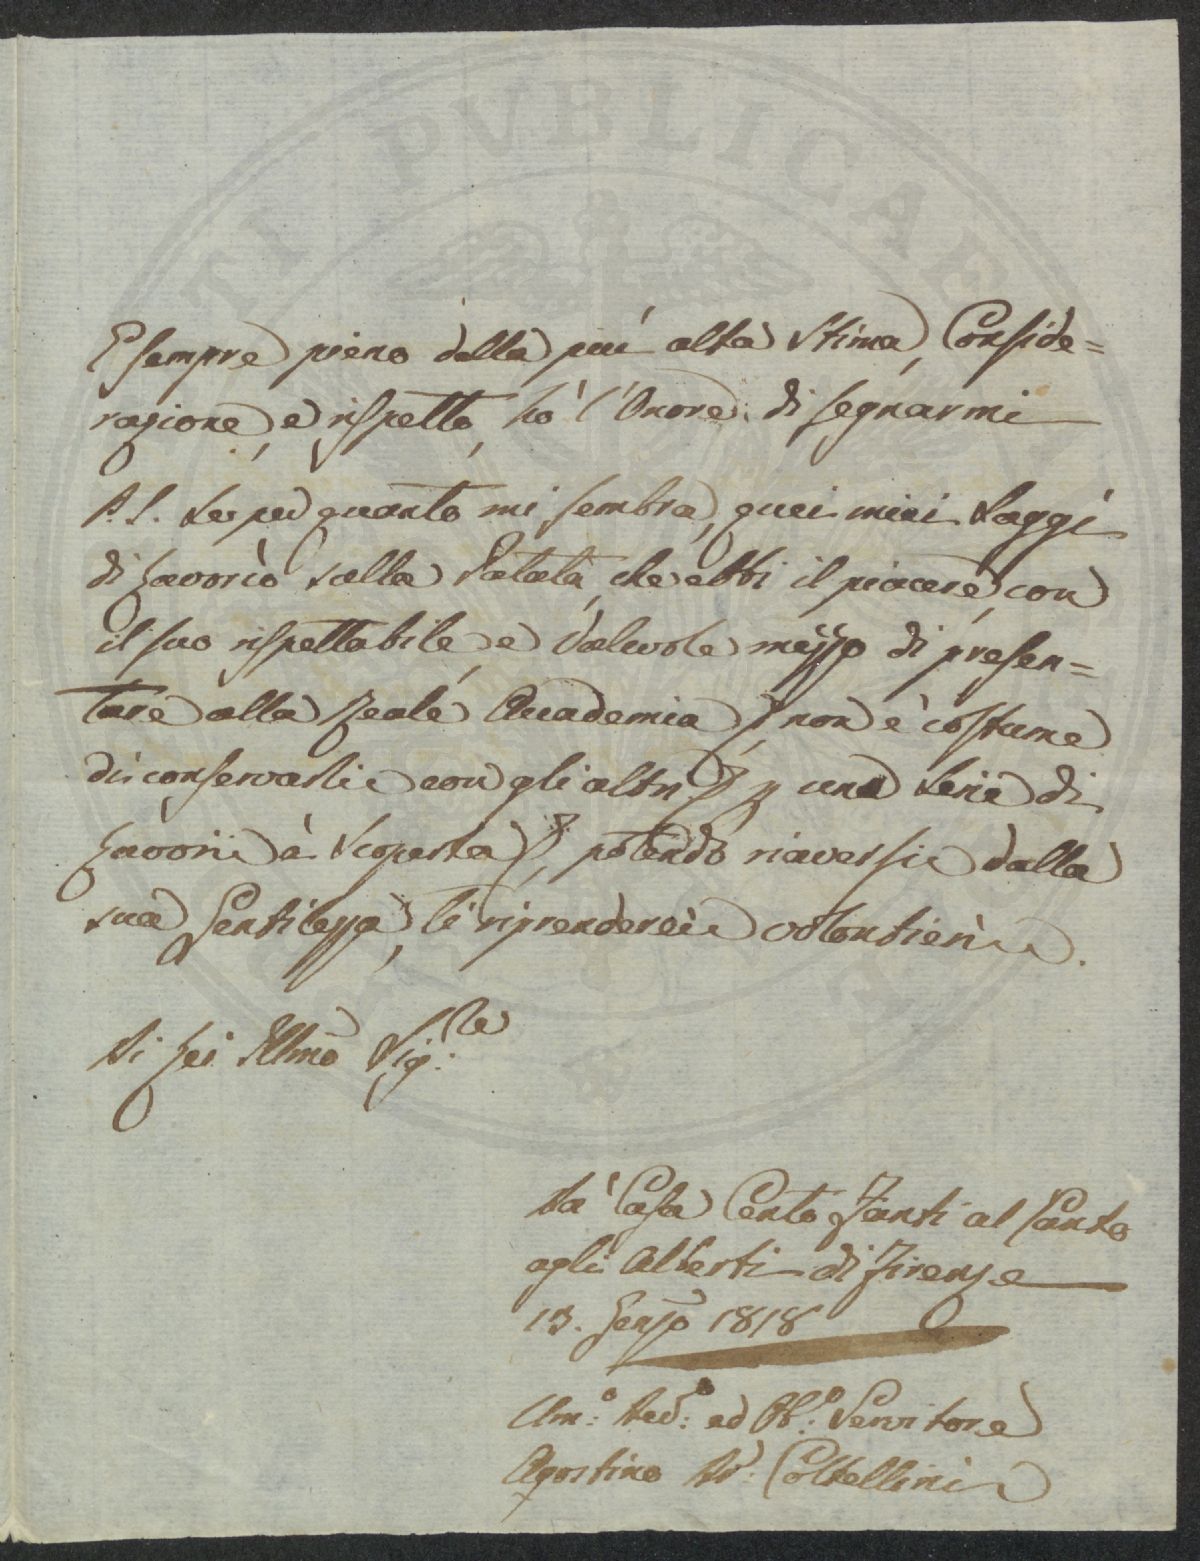 E sempre pieno della più alta Stima, Conside=
razione, e rispetto, hò l'Onore di segnarmi
P. S. Se per quanto mi sembra, quei miei Saggi
di Lavorio sulla Patata, che ebbi il piacere, con
il suo rispettabile, e Valevole mezzo di presen=
tare alla Reale Accademia, non è costume
di conservarli con gli altri una Serie di
Lavori à Scoperta, potendo riaversi dalla
sua Gentilezza, li riprenderei volontieri.
Di Lei Illmo Sig:re
Da Casa Cento Fanti al Canto
agli Alberti di Firenze
13. 1818
Um:o Dev:o ed Ob:o Servitore
Agostino Coltellini
PVBLICAE